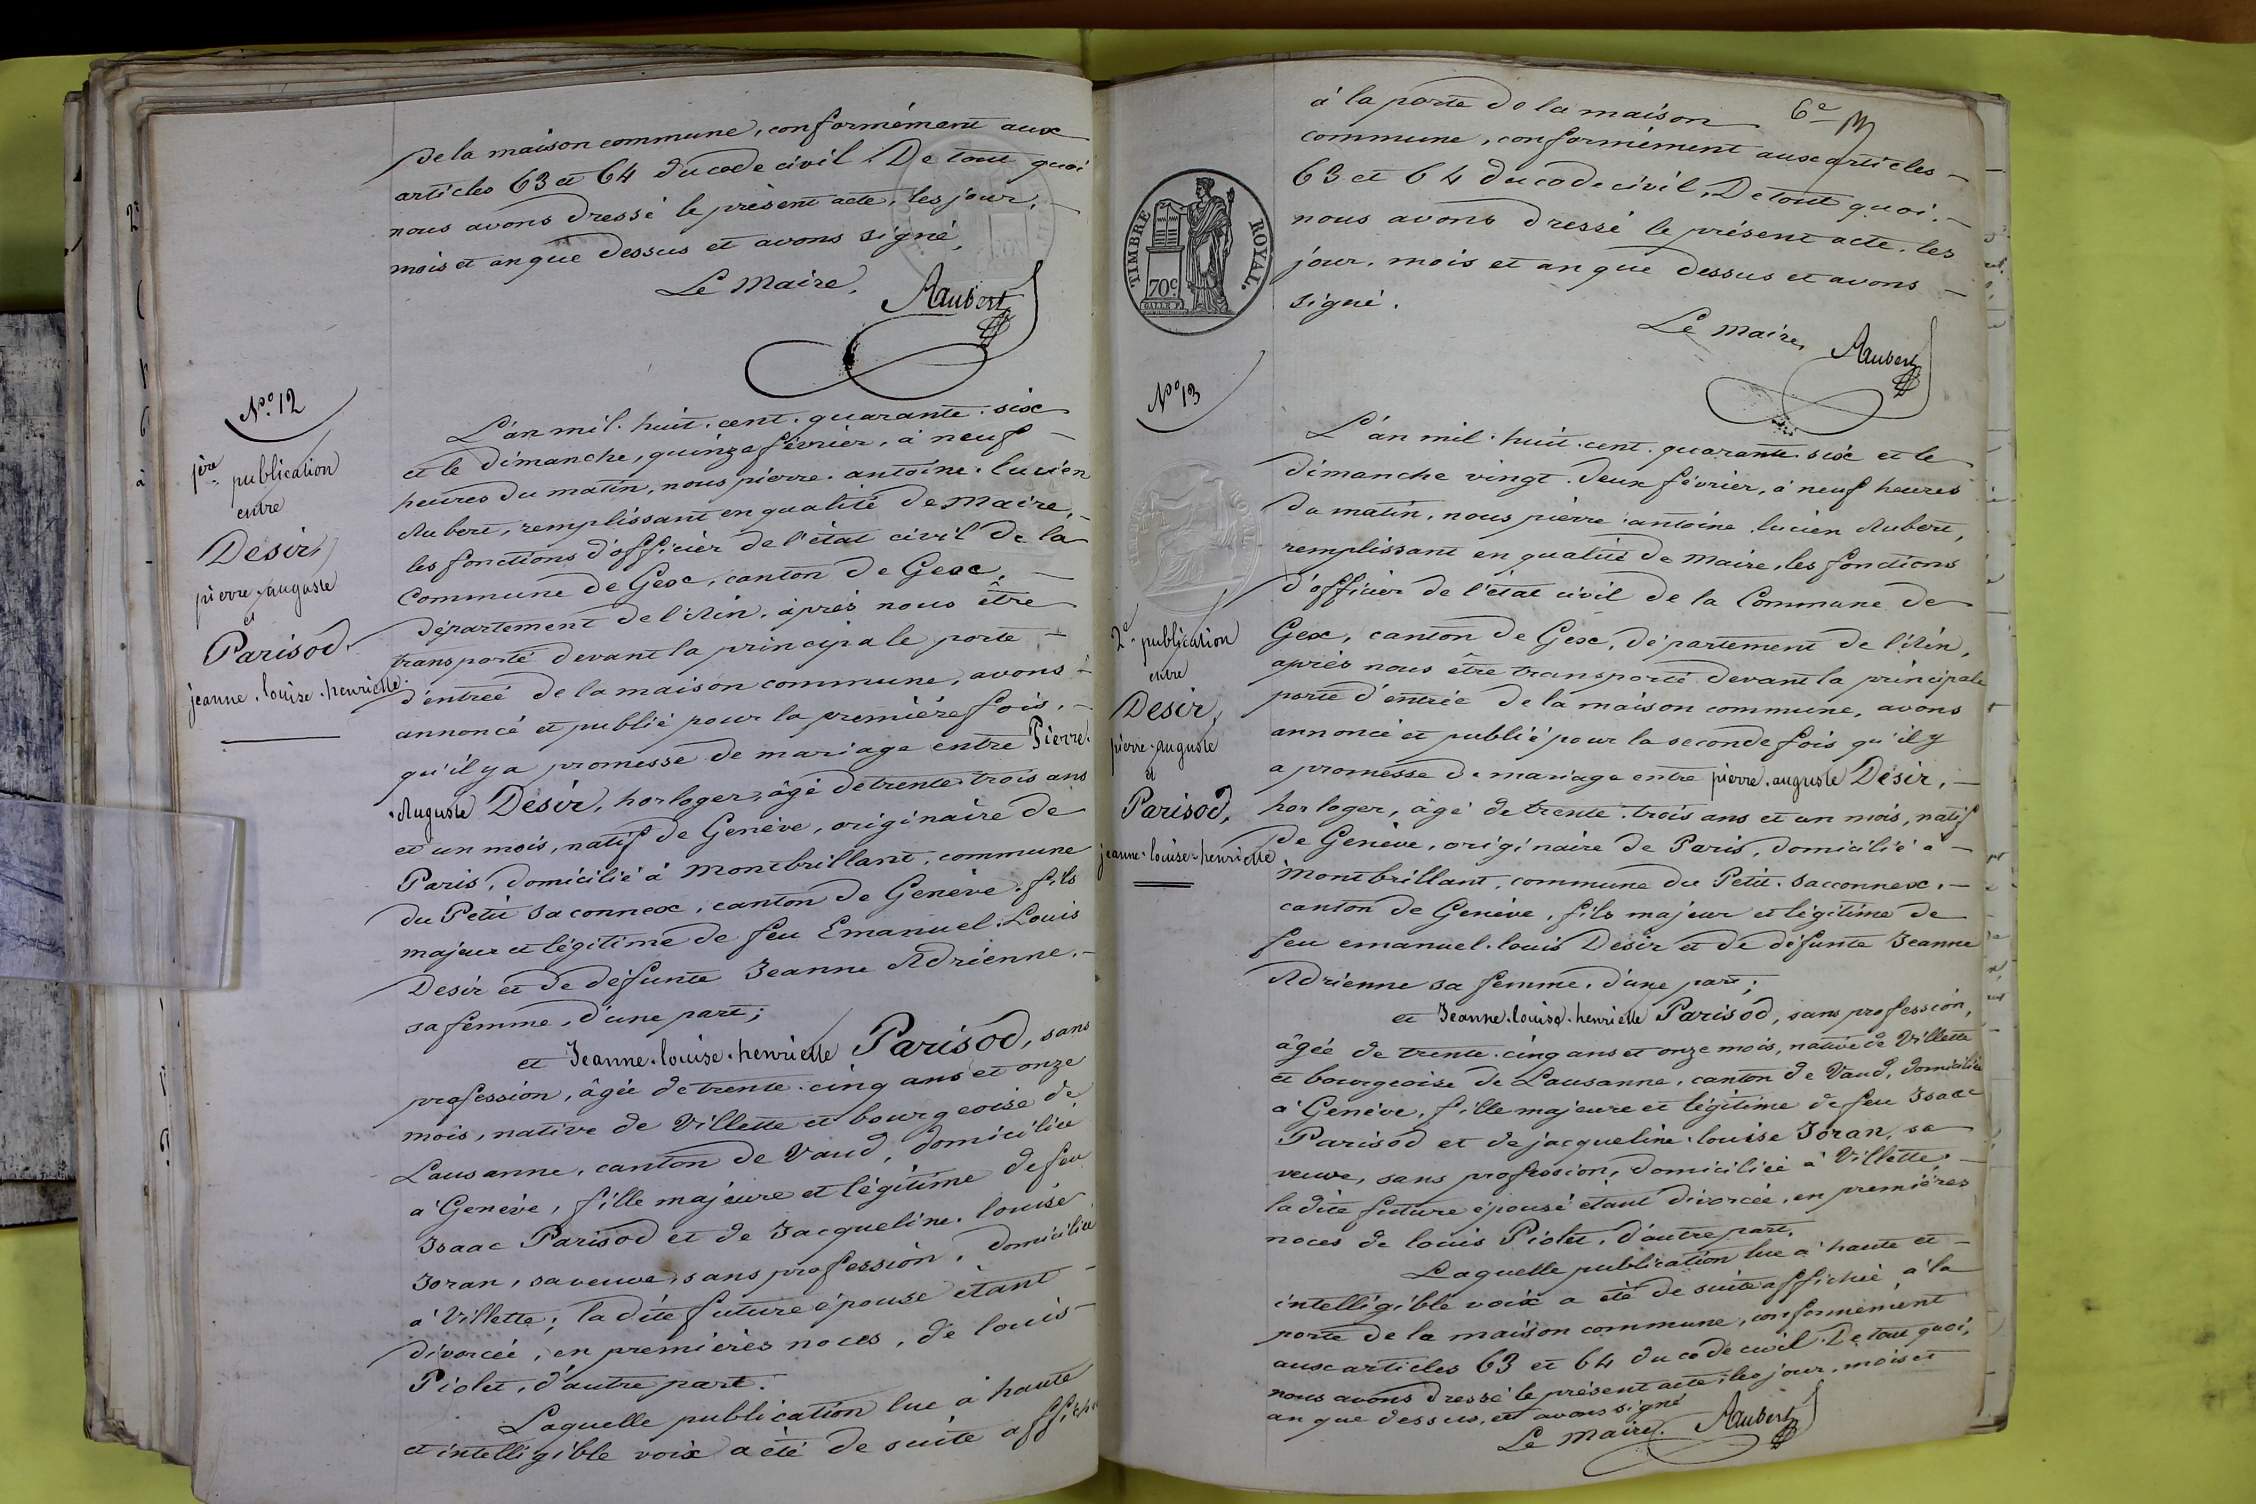 de la maison commune, conformément aux
articles 63 et 64 du code civil. De tout quoi
nous avons dressé le présent acte, les jour,
mois et an que dessus et avons signé,
Le Maire,
Aubert
N.º 12
1ère publication
entre
Desir,
pierre auguste
et
Parisod
jeanne. louise. henriette.
L'an mil. huit. cent. quarante. six
et le dimanche, quinze février, à neuf
heures du matin, nous pierre. antoine. lucien
Aubert, remplissant en qualité de Maire,
les fonctions d'officier de l'état civil de la
Commune de Gex, canton de Gex,
département de l'Ain, après nous être
transporté devant la principale porte
d'entrée de la maison commune, avons
annoncé et publié pour la première fois,
qu'il y a promesse de mariage entre Pierre.
Auguste Desir, horloger, âgé de trente. trois ans
et un mois, natif de Genève, originaire de
Paris, domicilié à Montbrillant, commune
du Petit Saconnex, canton de Genève. fils
majeur et légitime de feu Emanuel. Louis
Desir et de défunte Jeanne Adrienne,
sa femme, d'une part;
et Jeanne. louise. henriette Parisod, sans
profession, âgée de trente. cinq ans et onze
mois, native de Villette et bourgeoise de
Lausanne, canton de Vaud, domiciliée
à Genève, fille majeure et légitime de feu
Isaac Parisod et de Jacqueline. louise
Joran, sa veuve, sans profession, domiciliée
à Villette; la dite future épouse étant
divorcée, en premières noces, de louis
Piolet, d'autre part.
Laquelle publication lue à haute
et intelligible voix a été de suite affichée
6e
à la porte de la maison
commune, conformément aux articles
63 et 64 du code civil, De tout quoi.
nous avons dressé le présent acte. les
jour, mois et an que dessus et avons
signé.
Le Maire,
Aubert
TIMBRE ROYAL.
70c
Nº 13
2e publication
entre
Desir,
pierre. auguste
et
Parisod,
jeanne. louise. henriette
L'an mil. huit. cent. quarante. six et le
dimanche vingt. deux février, à neuf heures
du matin, nous pierre antoine lucien Aubert,
remplissant en qualité de Maire, les fonctions
d'officier de l'état civil de la Commune de
Gex, canton de Gex, département de l'Ain,
après nous être transporté devant la principale
porte d'entrée de la maison commune, avons
annoncé et publié pour la seconde fois qu'il y
a promesse de mariage entre pierre. auguste Desir,
horloger, âgé de trente. trois ans et un mois, natif
de Genève, originaire de Paris, domicilié à
Montbrillant, commune du Petit. Sacconnex,
canton de Genève, fils majeur et légitime de
feu emanuel. louis Desir et de défunte Jeanne
Adrienne sa femme, d'une part;
et Jeanne. louise. henriette Parisod, sans profession,
âgée de trente. cinq ans et onze mois, native de Villette
et bourgeoise de Lausanne, canton de Vaud, domiciliée
à Genève, fille majeure et légitime de feu Isaac
Parisod et de jacqueline. louise Joran, sa
veuve, sans profession, domiciliée à Villette;
la dite future épouse étant divorcée, en premières
noces de louis Piolet, d'autre part.
Laquelle publication lue à haute et
intelligible voix a été de suite affichée à la
porte de la maison commune, conformément
aux articles 63 et 64 du code civil. De tout quoi,
nous avons dressé le présent acte, les jour, mois et
an que dessus, et avons signé
Le Maire. Aubert